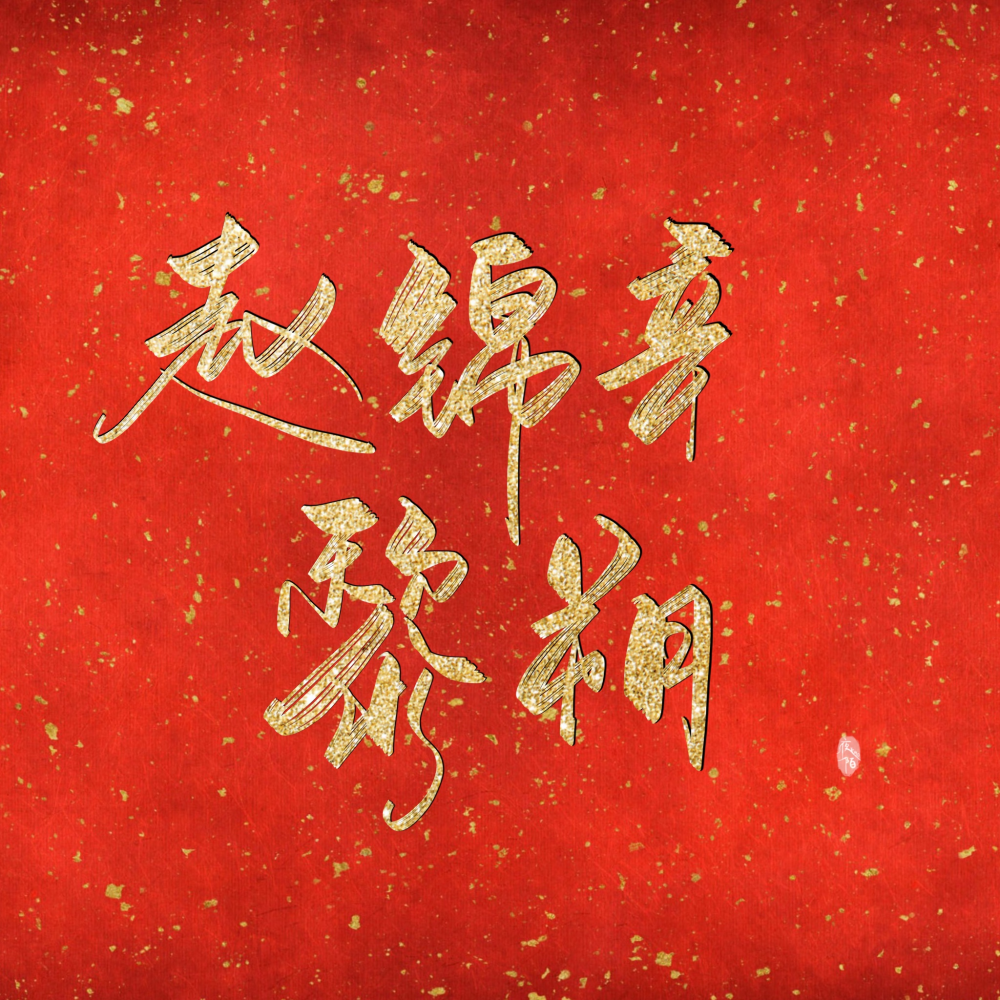 赵锦辛
黎朔